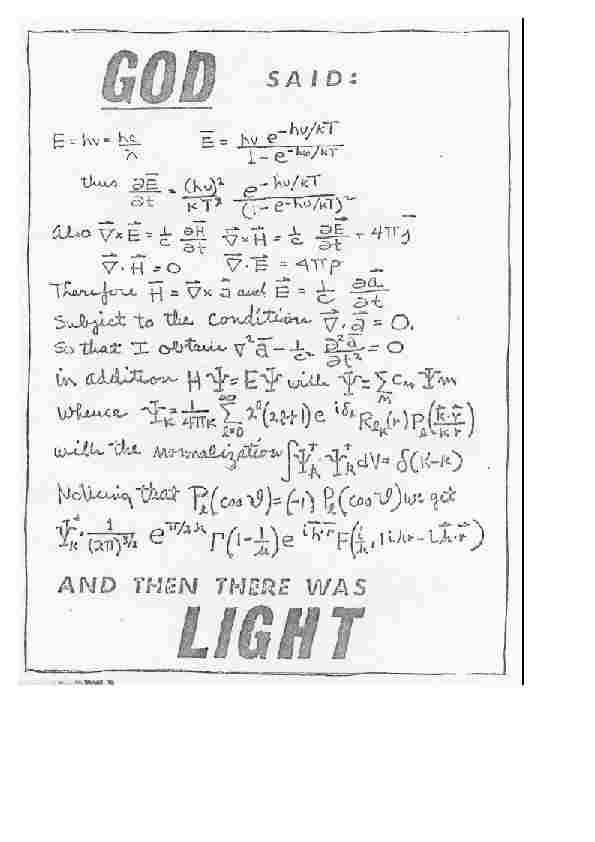 GOD SAID:
E = hν = hc/λ   Ē = hν e^(-hν/kT) / (1 - e^(-hν/kT))
thus ∂Ē/∂t = (hν)²/kT² e^(-hν/kT) / (1 - e^(-hν/kT))²
Also ∇⃗×E⃗ = 1/c ∂H⃗/∂t   ∇⃗×H⃗ = 1/c ∂E⃗/∂t + 4πj⃗
∇⃗·H⃗ = 0   ∇⃗·E⃗ = 4πρ
Therefore H⃗ = ∇⃗× a⃗ and E⃗ = 1/c ∂a⃗/∂t
Subject to the condition ∇⃗·a⃗ = 0.
So that I obtain ∇²a⃗ - 1/c² ∂²a⃗/∂t² = 0
in addition HΨ = EΨ with Ψ = Σ_m C_m Ψ_m
Whence Ψ_k = 1/4πk Σ_(l=0)^∞ i^l (2l+1) e^(iδ_l) R_lk(r) P_l(k⃗·r⃗/kr)
with the normalization ∫Ψ_k⁺·Ψ_k⁺ dV = δ(k-k)
Noticing that P_l(cos ϑ) = (-1) P_l(cos ϑ) we get
Ψ_k⁺ · 1/(2π)^(3/2) e^(π/2k) Γ(1 - i/k) e^(ik⃗·r⃗) F(i/k, 1 ikr - ik⃗·r⃗)
AND THEN THERE WAS
LIGHT